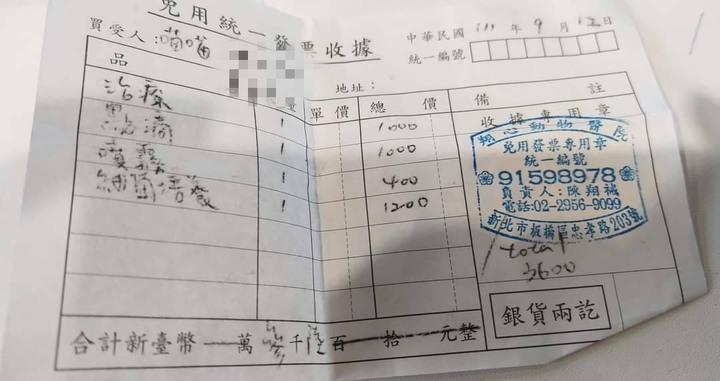 免用統一發票收據
中華民國 111 年 9 月 12 日
買受人：喵喵
統一編號
地址：
品 量 單價 總價 備註
治療 1 1000
點滴 1 1000
噴霧 1 400
細菌培養 1 1200
收據專用章
翔心動物醫院
免用發票專用章
統一編號
91598978
負責人：陳翔禎
電話:02-2956-9099
新北市板橋區忠孝路203號
total
3600
銀貨兩訖
合計新臺幣 萬 參千陸百 拾 元整